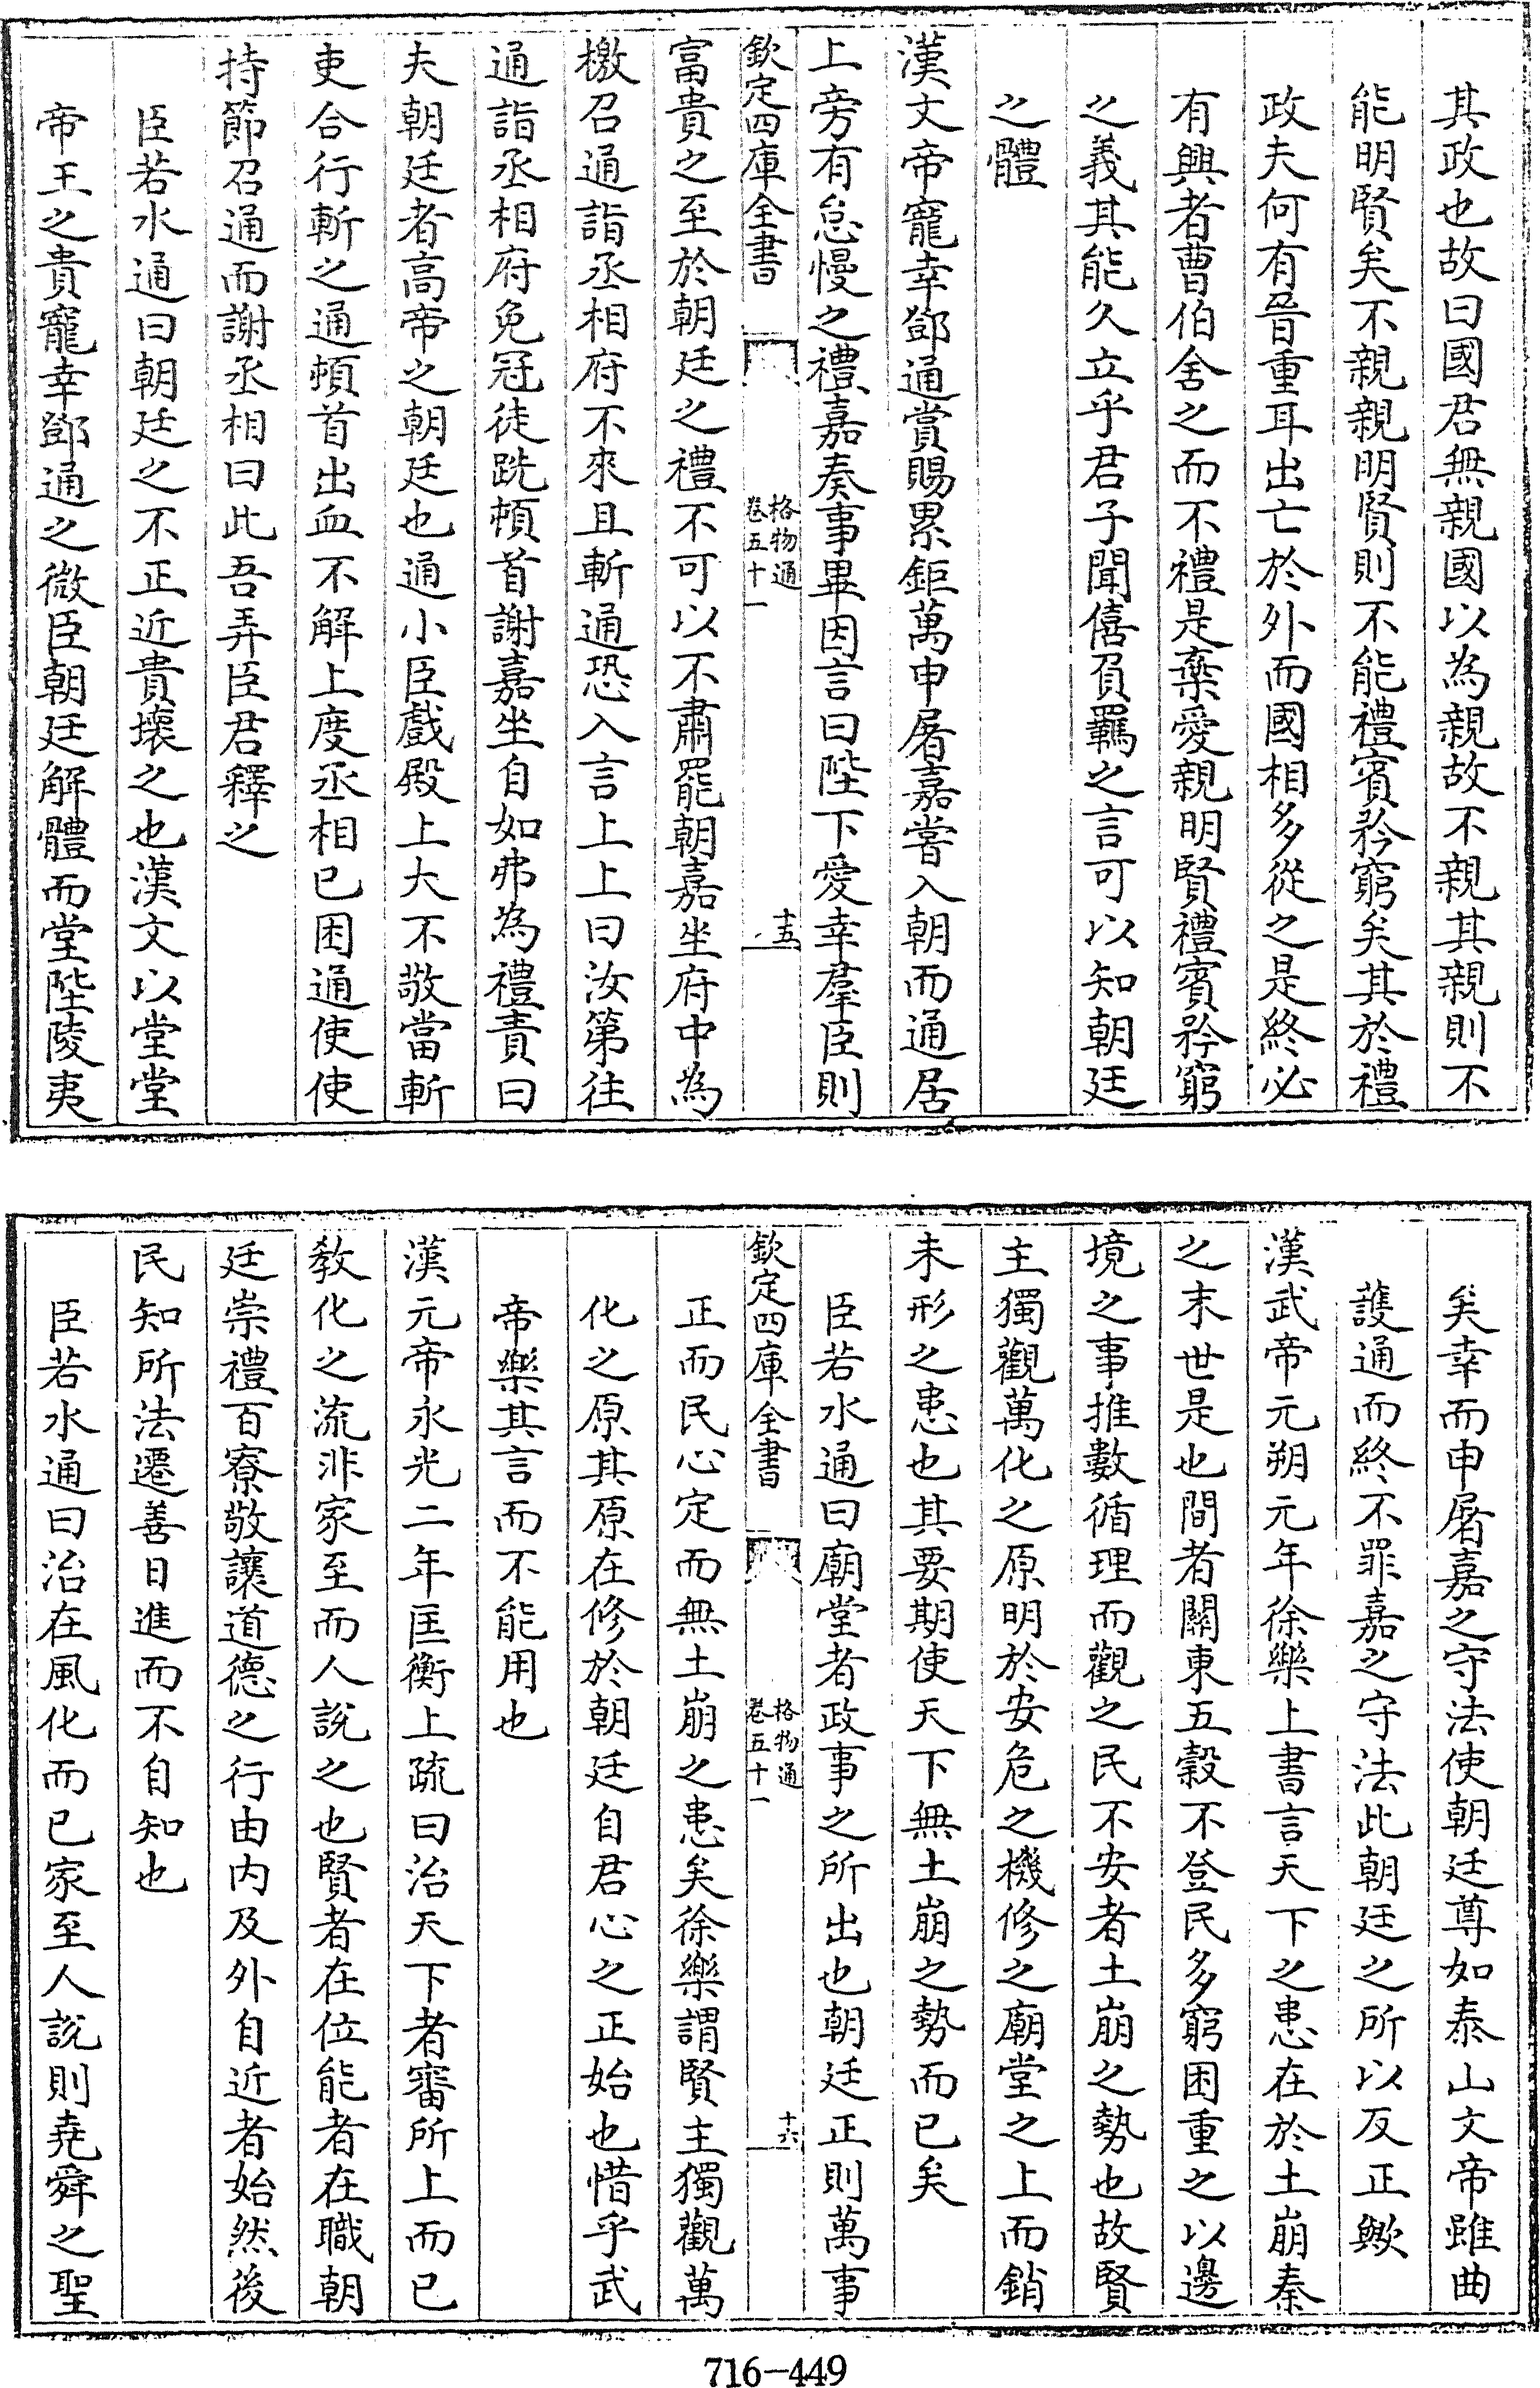 其政也故曰國君無親國以為親故不親其親則不
能明賢矣不親親明賢則不能禮賓矜窮矣其於禮
政夫何有晉重耳出亡於外而國相多從之是終必
有興者曹伯舍之而不禮是棄愛親明賢禮賓矜窮
之義其能久立乎君子聞僖負羈之言可以知朝廷
之體
漢文帝寵幸鄧通賞賜累鉅萬申屠嘉嘗入朝而通居
上旁有怠慢之禮嘉奏事畢因言曰陛下愛幸羣臣則
欽定四庫全書
格物通
卷五十一
十五
富貴之至於朝廷之禮不可以不肅罷朝嘉坐府中為
檄召通詣丞相府不來且斬通恐入言上上曰汝第往
通詣丞相府免冠徒跣頓首謝嘉坐自如弗為禮責曰
夫朝廷者高帝之朝廷也通小臣戲殿上大不敬當斬
吏合行斬之通頓首出血不解上度丞相已困通使使
持節召通而謝丞相曰此吾弄臣君釋之
臣若水通曰朝廷之不正近貴壞之也漢文以堂堂
帝王之貴寵幸鄧通之微臣朝廷解體而堂陛陵夷
矣幸而申屠嘉之守法使朝廷尊如泰山文帝雖曲
護通而終不罪嘉之守法此朝廷之所以反正歟
漢武帝元朔元年徐樂上書言天下之患在於土崩秦
之末世是也間者關東五穀不登民多窮困重之以邊
境之事推數循理而觀之民不安者土崩之勢也故賢
主獨觀萬化之原明於安危之機修之廟堂之上而銷
未形之患也其要期使天下無土崩之勢而已矣
臣若水通曰廟堂者政事之所出也朝廷正則萬事
欽定四庫全書
格物通
卷五十一
十六
正而民心定而無土崩之患矣徐樂謂賢主獨觀萬
化之原其原在修於朝廷自君心之正始也惜乎武
帝樂其言而不能用也
漢元帝永光二年匡衡上疏曰治天下者審所上而已
教化之流非家至而人說之也賢者在位能者在職朝
廷崇禮百寮敬讓道德之行由內及外自近者始然後
民知所法遷善日進而不自知也
臣若水通曰治在風化而已家至人說則堯舜之聖
716-449